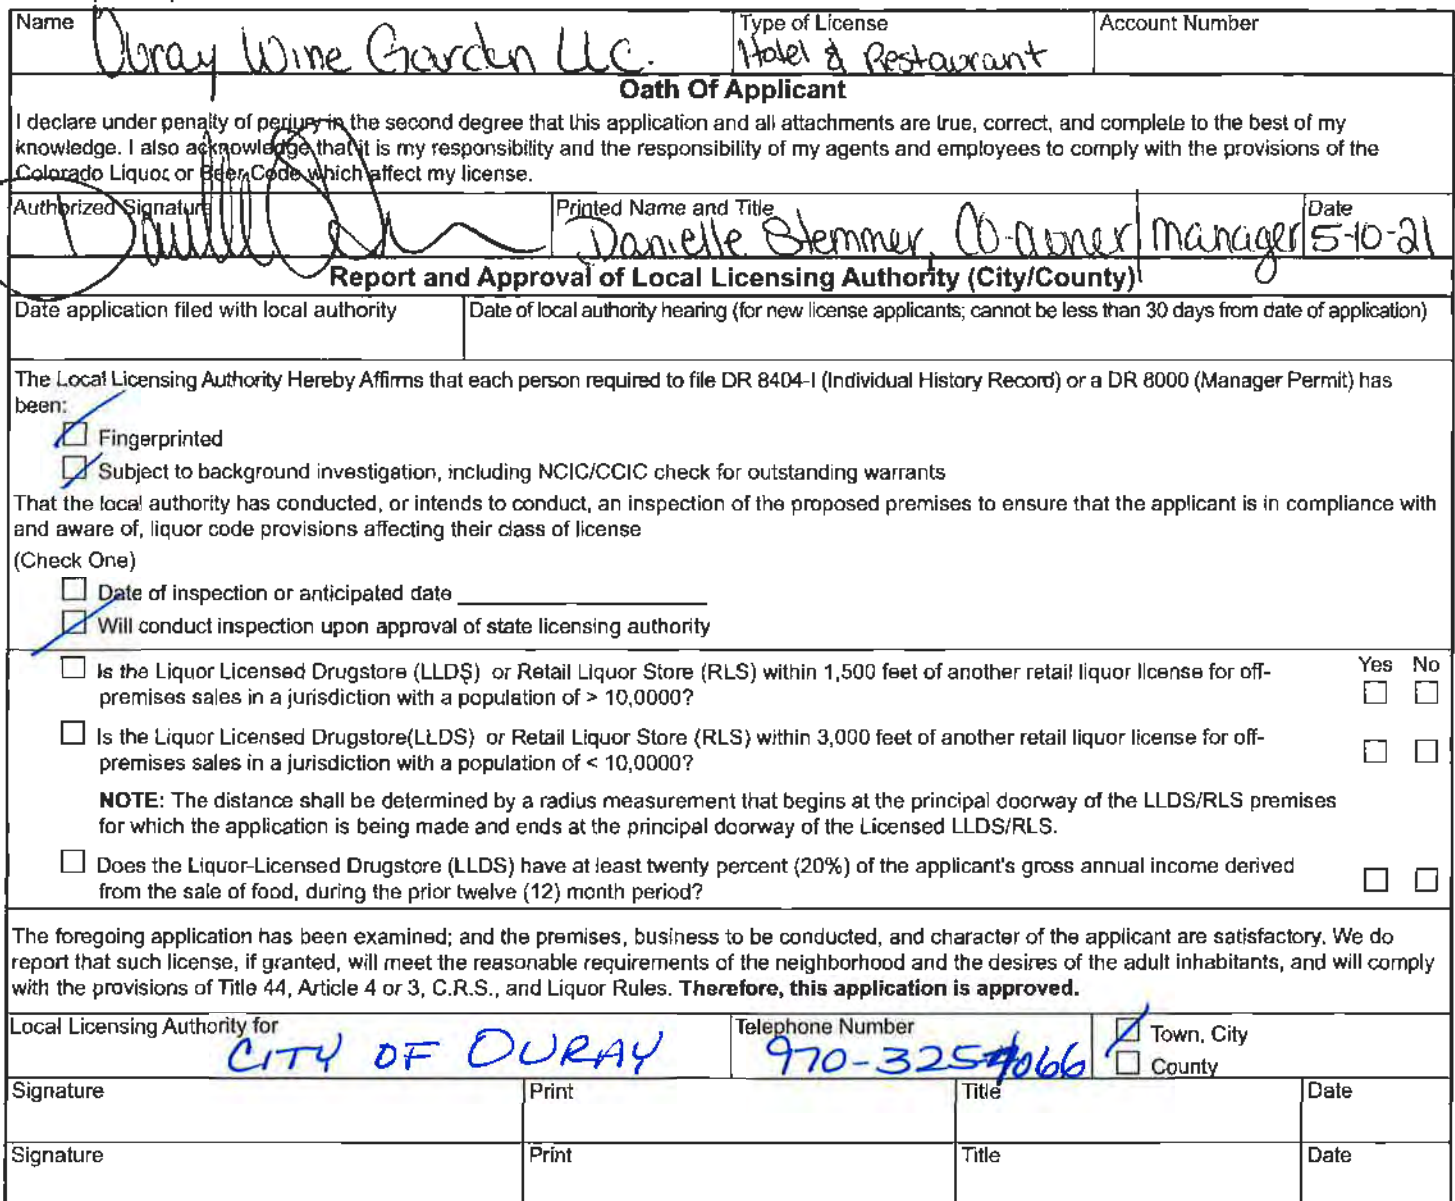 Name
Ouray Wine Garden LLC.
Type of License
Hotel & Restaurant
Account Number
Oath Of Applicant
I declare under penalty of perjury in the second degree that this application and all attachments are true, correct, and complete to the best of my
knowledge. I also acknowledge that it is my responsibility and the responsibility of my agents and employees to comply with the provisions of the
Colorado Liquor or Beer Code which affect my license.
Authorized Signature
Printed Name and Title
Danielle Stemmer, Co-owner/manager
Date
5-10-21
Report and Approval of Local Licensing Authority (City/County)
Date application filed with local authority
Date of local authority hearing (for new license applicants; cannot be less than 30 days from date of application)
The Local Licensing Authority Hereby Affirms that each person required to file DR 8404-I (Individual History Record) or a DR 8000 (Manager Permit) has
been:
Fingerprinted
Subject to background investigation, including NCIC/CCIC check for outstanding warrants
That the local authority has conducted, or intends to conduct, an inspection of the proposed premises to ensure that the applicant is in compliance with
and aware of, liquor code provisions affecting their class of license
(Check One)
Date of inspection or anticipated date
Will conduct inspection upon approval of state licensing authority
Yes No
Is the Liquor Licensed Drugstore (LLDS) or Retail Liquor Store (RLS) within 1,500 feet of another retail liquor license for off-
premises sales in a jurisdiction with a population of > 10,0000?
Is the Liquor Licensed Drugstore(LLDS) or Retail Liquor Store (RLS) within 3,000 feet of another retail liquor license for off-
premises sales in a jurisdiction with a population of < 10,0000?
NOTE: The distance shall be determined by a radius measurement that begins at the principal doorway of the LLDS/RLS premises
for which the application is being made and ends at the principal doorway of the Licensed LLDS/RLS.
Does the Liquor-Licensed Drugstore (LLDS) have at least twenty percent (20%) of the applicant's gross annual income derived
from the sale of food, during the prior twelve (12) month period?
The foregoing application has been examined; and the premises, business to be conducted, and character of the applicant are satisfactory. We do
report that such license, if granted, will meet the reasonable requirements of the neighborhood and the desires of the adult inhabitants, and will comply
with the provisions of Title 44, Article 4 or 3, C.R.S., and Liquor Rules. Therefore, this application is approved.
Local Licensing Authority for
CITY OF OURAY
Telephone Number
970-325-4066
Town, City
County
Signature
Print
Title
Date
Signature
Print
Title
Date